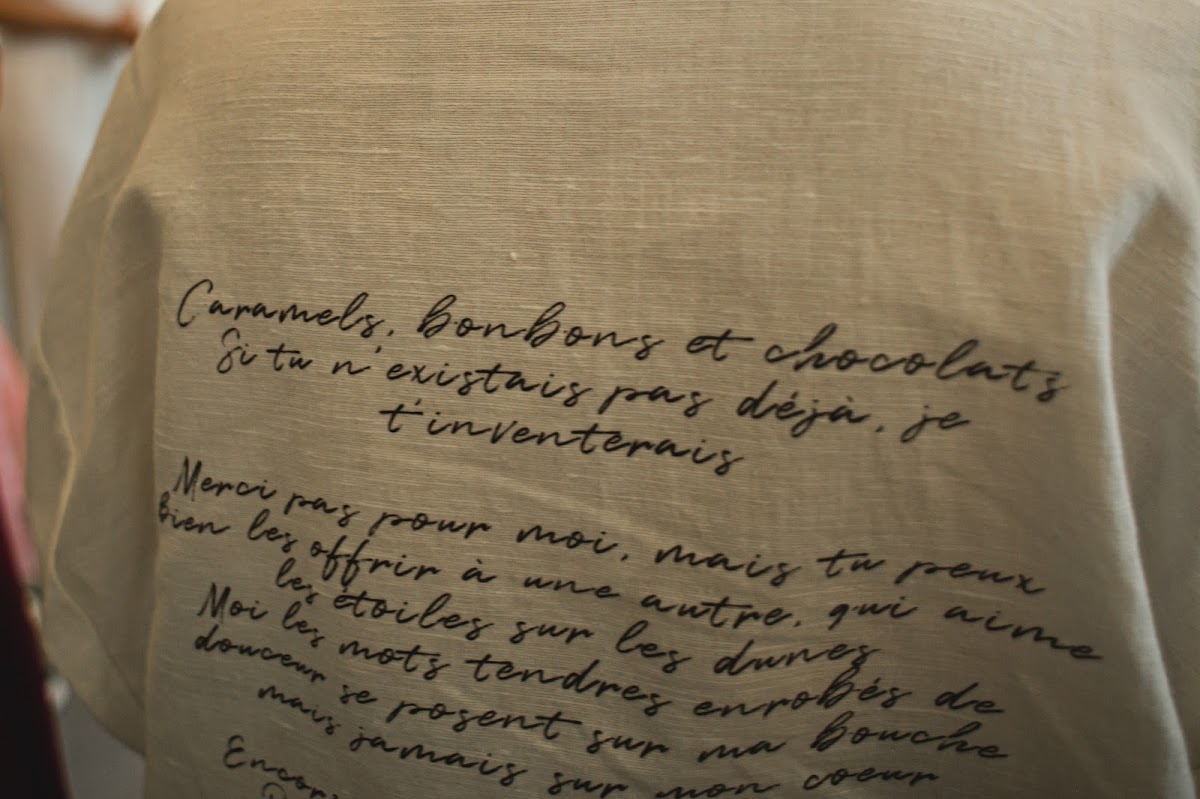 Caramels, bonbons et chocolats
Si tu n'existais pas déjà, je
t'inventerais
Merci pas pour moi, mais tu peux
Bien les offrir à une autre, qui aime
les étoiles sur les dunes
Moi les mots tendres enrobés de
douceur se posent sur ma bouche
mais jamais sur mon coeur